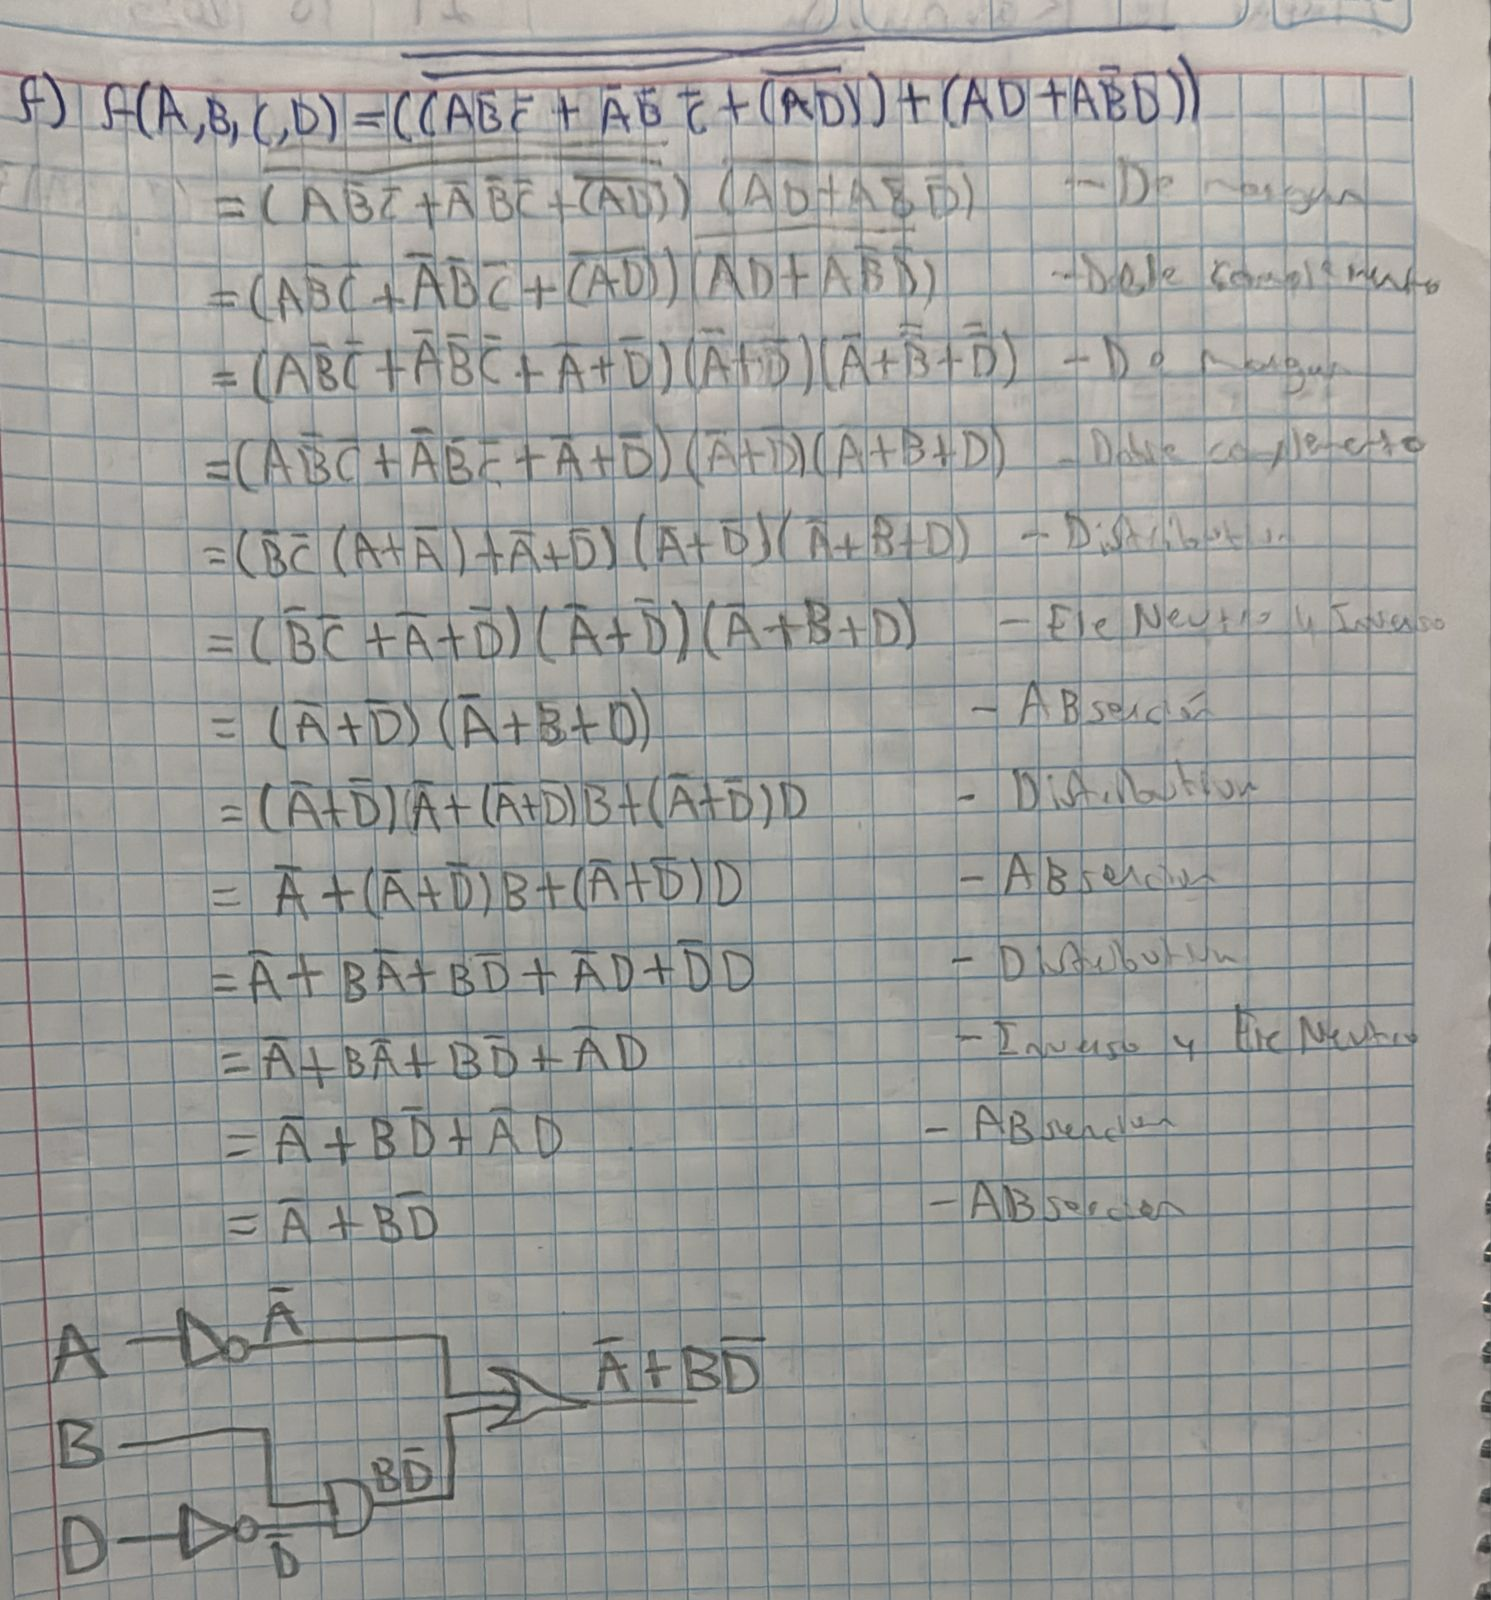 f) f(A,B,C,D) = ((AB̅C̅ + A̅B̅C̅ + (A̅D̅)) + (AD + AB̅D̅))
= (AB̅C̅ + A̅B̅C̅ + (A̅D̅)) (AD + AB̅D̅) - De morgan
= (AB̅C̅ + A̅B̅C̅ + (A̅D̅)) (AD + AB̅D̅) - Doble complemento
= (AB̅C̅ + A̅B̅C̅ + A̅ + D̅) (A̅ + D̅) (A̅ + B̿ + D̿) - De morgan
= (AB̅C̅ + A̅B̅C̅ + A̅ + D̅) (A̅ + D̅) (A̅ + B + D) - Doble
= (B̅C̅ (A + A̅) + A̅ + D̅) (A̅ + D̅) (A̅ + B + D) - Distributiva
= (B̅C̅ + A̅ + D̅) (A̅ + D̅) (A̅ + B + D) - Ele Neutro y Inverso
= (A̅ + D̅) (A̅ + B + D) - ABsorción
= (A̅ + D̅) A̅ + (A̅ + D̅) B + (A̅ + D̅) D - Distributiva
= A̅ + (A̅ + D̅) B + (A̅ + D̅) D - ABsorcion
= A̅ + BA̅ + BD̅ + A̅D + D̅D - Distributiva
= A̅ + BA̅ + BD̅ + A̅D - Inverso y Ele Neutro
= A̅ + BD̅ + A̅D - ABsorcion
= A̅ + BD̅ - ABsorcion
A A̅ A̅ + BD̅
B BD̅
D D̅